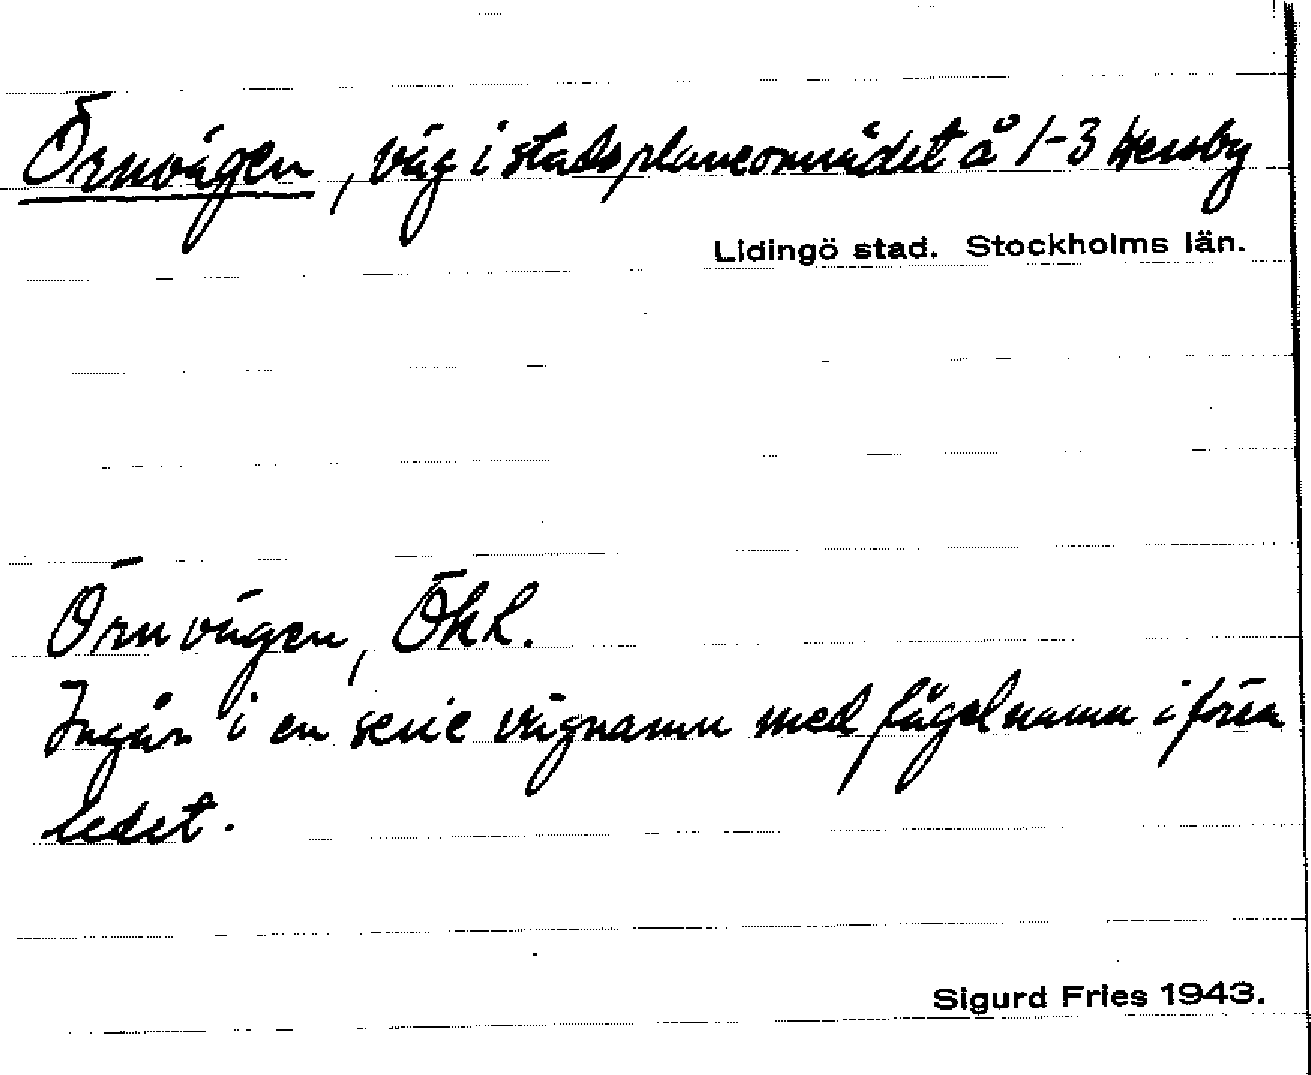 Örnvägen, väg i stadsplaneområdet å 1-3 Hersby
Lidingö stad. Stockholms län.
Örnvägen, ÖhL.
Ingår i en serie vägnamn med fågelnamn i förra
ledet.
Sigurd Fries 1943.